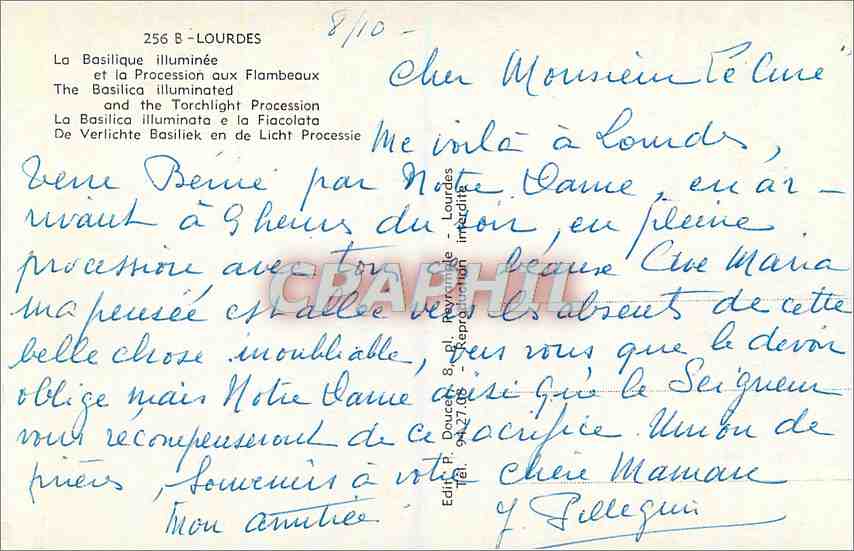 256 B - LOURDES
La Basilique illuminée
et la Procession aux Flambeaux
The Basilica illuminated
and the Torchlight Procession
La Basilica illuminata e la Fiacolata
De Verlichte Basiliek en de Licht Processie
8/10 -
Cher Monsieur Le Curé
Me voilà à Lourdes,
Terre Bénie par Notre Dame, en ar-
rivant à 9 heures du soir, en pleine
procession, avec tous ces beaux Ave Maria
ma pensée est allée vers les absents de cette
belle chose inoubliable, vers vous que le devoir
oblige mais Notre Dame ainsi que le Seigneur
vous récompenseront de ce sacrifice. Union de
prières, Souvenirs à votre chère Maman
Mon amitiée
J. Pellegrin
Edit. P. Doucet, 8, pl. Peyramale - Lourdes
Tél. 94.27.08 - Reproduction interdite
CPAPHIL